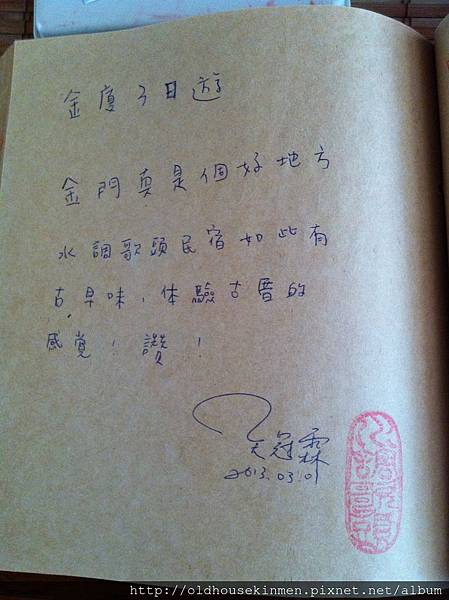 金廈3日遊
金門真是個好地方
水調歌頭民宿如此有
古早味,体驗古厝的
感覺!讚!
冠霖
2013.03.01
http://oldhousekinmen.pixnet.net/album